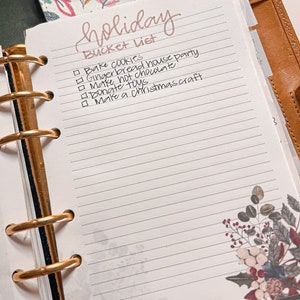 holiday
Bucket List
Bake cookies
Gingerbread house party
Make hot chocolate
Donate toys
Make a Christmas craft